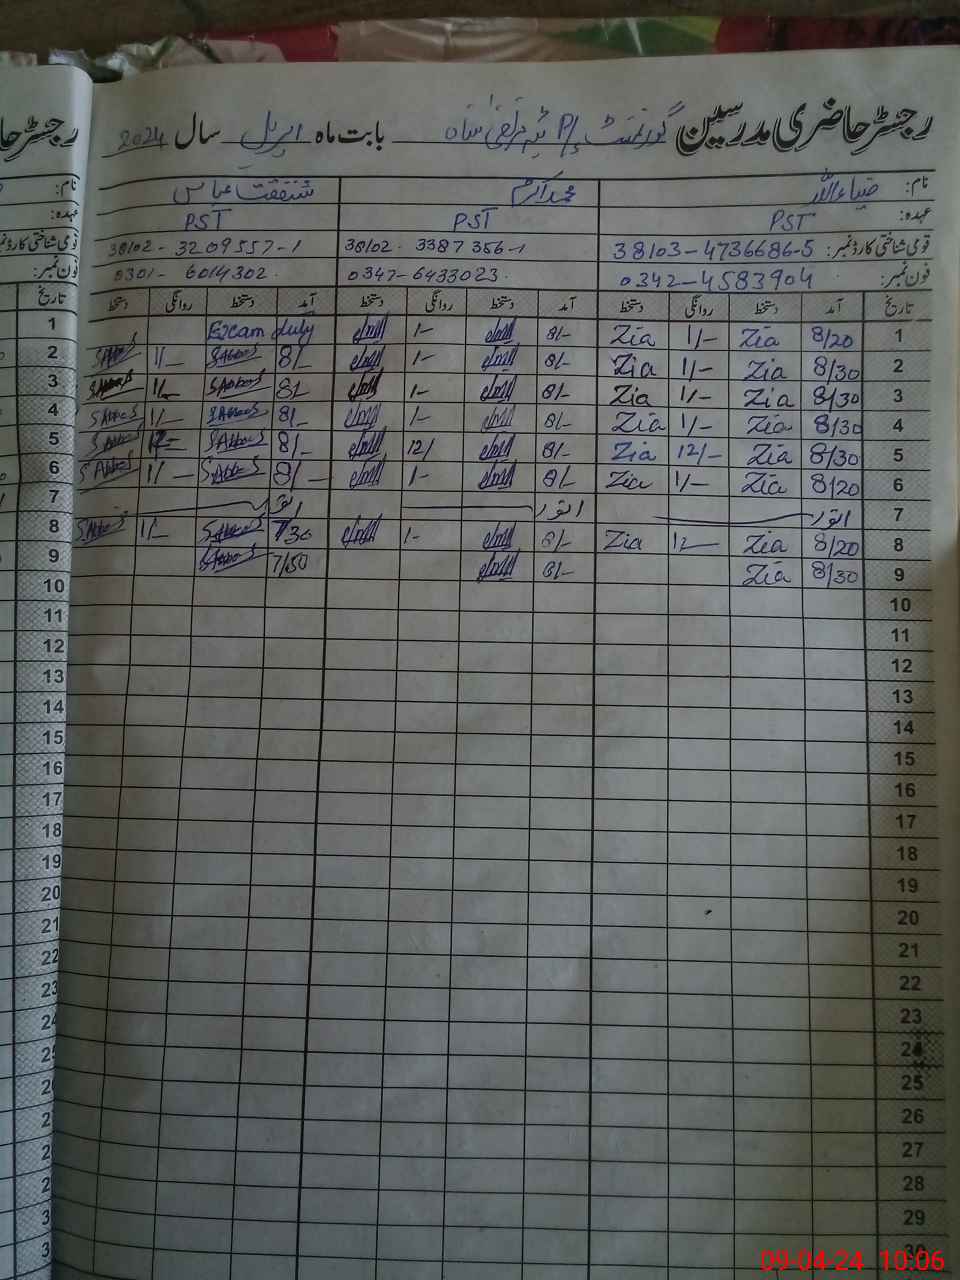 رجسٹر حاضری مدرسین گورنمنٹ P/S بابت ماہ اپریل سال 2024
نام: ضیاءاللہ محمد اکرم شفقت عباس
عہدہ: PST PST PST
قومی شناختی کارڈ نمبر: 38103-4736686-5 38102-3387356-1 38102-3209557-1
فون نمبر: 0342-4583904 0347-6433023 0301-6014302
تاریخ آمد دستخط روانگی دستخط آمد دستخط روانگی دستخط آمد دستخط روانگی دستخط تاریخ
1 8/20 Zia 1/- Zia 8/- 1/- Exam duty 1
2 8/30 Zia 1/- Zia 8/- 1/- 8/- SAbbas 1/- SAbbas 2
3 8/30 Zia 1/- Zia 8/- 1/- 8/- SAbbas 1/- SAbbas 3
4 8/30 Zia 1/- Zia 8/- 1/- 8/- SAbbas 1/- SAbbas 4
5 8/30 Zia 12/- Zia 8/- 12/ 8/- SAbbas 12- SAbbas 5
6 8/20 Zia 1/- Zia 8/- 1/- 8/- SAbbas 1/- SAbbas 6
7 اتوار اتوار اتوار 7
8 8/20 Zia 12- Zia 8/- 1- 7/30 SAbbas 1/- SAbbas 8
9 8/30 Zia 8/- 7/50 SAbbas 9
10 10
11 11
12 12
13 13
14 14
15 15
16 16
17 17
18 18
19 19
20 20
21 21
22 22
23 23
24 24
25
26
27
28
29
30
09-04-24 10:06